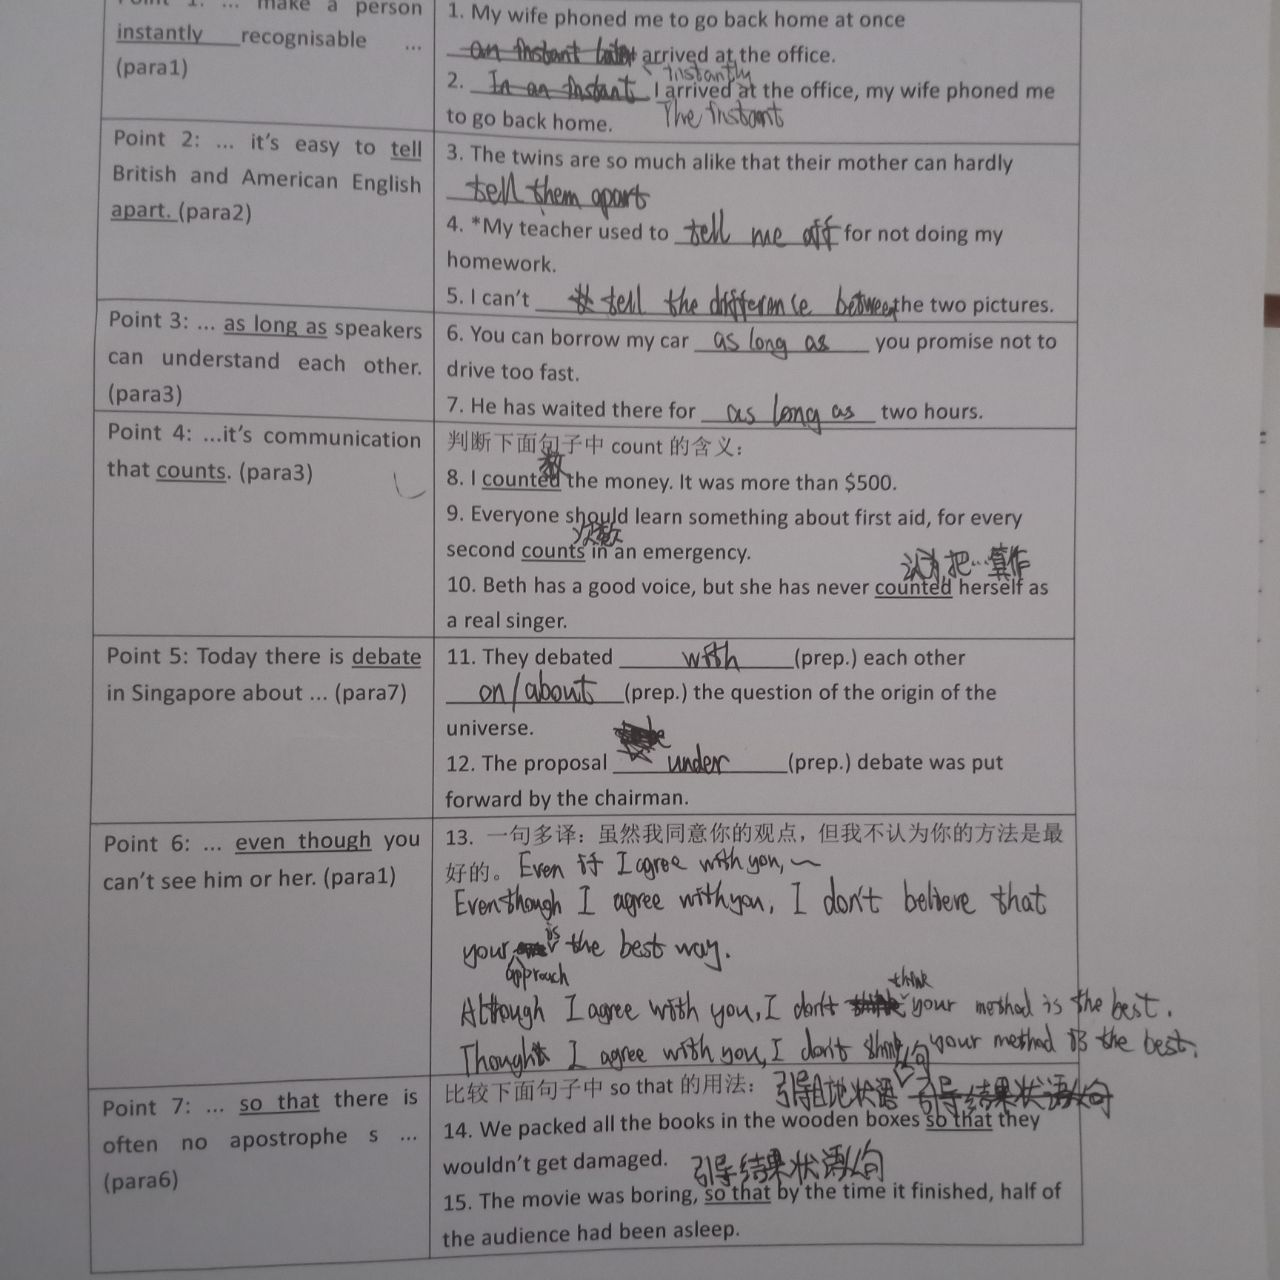 Point 1: ... make a person
instantly recognisable ...
(para1)
1. My wife phoned me to go back home at once
an instant later arrived at the office.
instantly
2. In an instant I arrived at the office, my wife phoned me
to go back home. The instant
Point 2: ... it's easy to tell
British and American English
apart. (para2)
3. The twins are so much alike that their mother can hardly
tell them apart
4. *My teacher used to tell me off for not doing my
homework.
5. I can't tell the difference between the two pictures.
Point 3: ... as long as speakers
can understand each other.
(para3)
6. You can borrow my car as long as you promise not to
drive too fast.
7. He has waited there for as long as two hours.
Point 4: ...it's communication
that counts. (para3)
判断下面句子中 count 的含义：
数
8. I counted the money. It was more than $500.
9. Everyone should learn something about first aid, for every
次数
second counts in an emergency.
认为,把…算作
10. Beth has a good voice, but she has never counted herself as
a real singer.
Point 5: Today there is debate
in Singapore about ... (para7)
11. They debated with (prep.) each other
on/about (prep.) the question of the origin of the
universe.
12. The proposal under (prep.) debate was put
forward by the chairman.
Point 6: ... even though you
can't see him or her. (para1)
13. 一句多译：虽然我同意你的观点，但我不认为你的方法是最
好的。 Even if I agree with you, ~
Even though I agree with you, I don't believe that
your approach is the best way.
Although I agree with you, I don't think your method is the best.
Though I agree with you, I don't think your method is the best.
Point 7: ... so that there is
often no apostrophe s ...
(para6)
比较下面句子中 so that 的用法： 引导目地状语从句 引导结果状语从句
14. We packed all the books in the wooden boxes so that they
wouldn't get damaged. 引导结果状语从句
15. The movie was boring, so that by the time it finished, half of
the audience had been asleep.